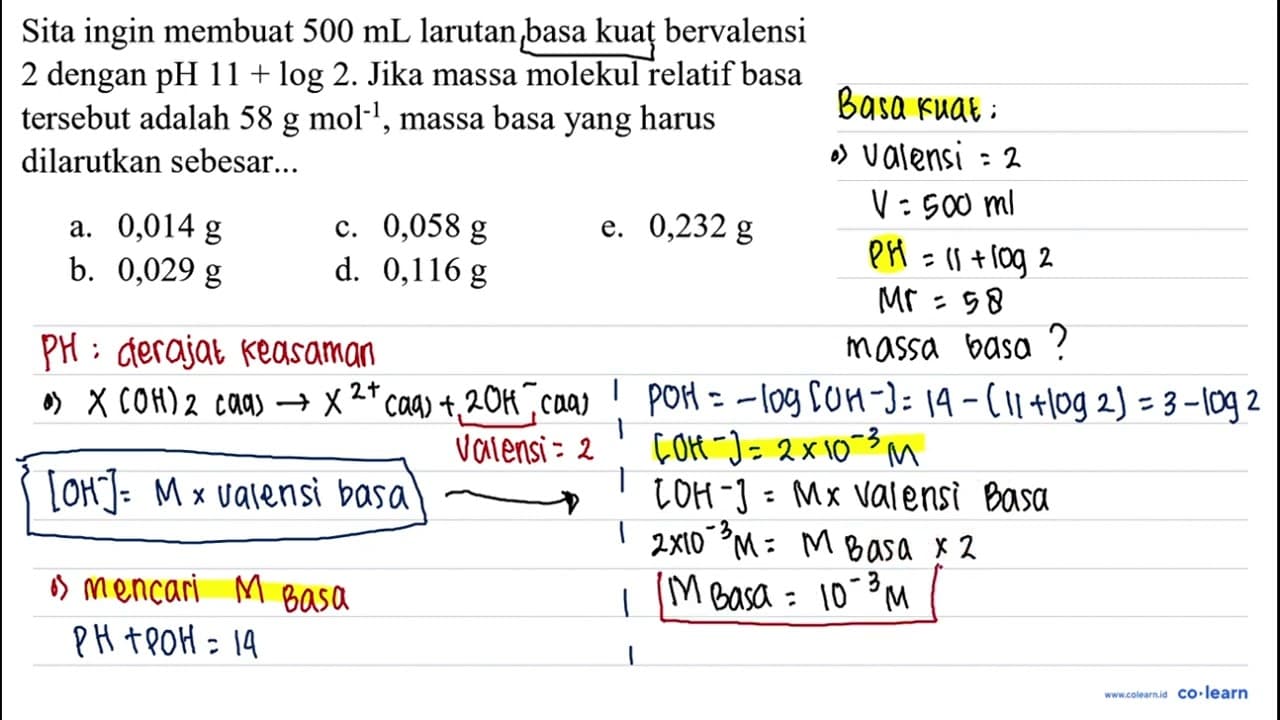 Sita ingin membuat 500 mL larutan basa kuat bervalensi
2 dengan pH 11 + log 2. Jika massa molekul relatif basa
tersebut adalah 58 g mol⁻¹, massa basa yang harus
dilarutkan sebesar...
a. 0,014 g c. 0,058 g e. 0,232 g
b. 0,029 g d. 0,116 g
Basa Kuat :
•) Valensi = 2
V = 500 ml
PH = 11 + log 2
Mr = 58
massa basa ?
PH : derajat keasaman
•) X(OH)2 (aq) → X²⁺(aq) + 2OH⁻(aq)
Valensi = 2
[OH⁻] = M x valensi basa
•) mencari M Basa
PH + POH = 14
POH = -log[OH⁻] = 14 - (11 + log 2) = 3 - log 2
[OH⁻] = 2 x 10⁻³ M
[OH⁻] = M x Valensi Basa
2x10⁻³ M = M Basa x 2
M Basa = 10⁻³ M
www.colearn.id co·learn